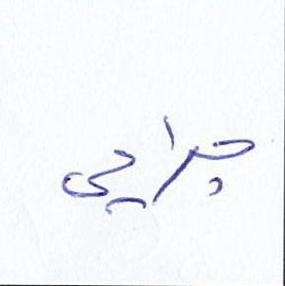 جراحي